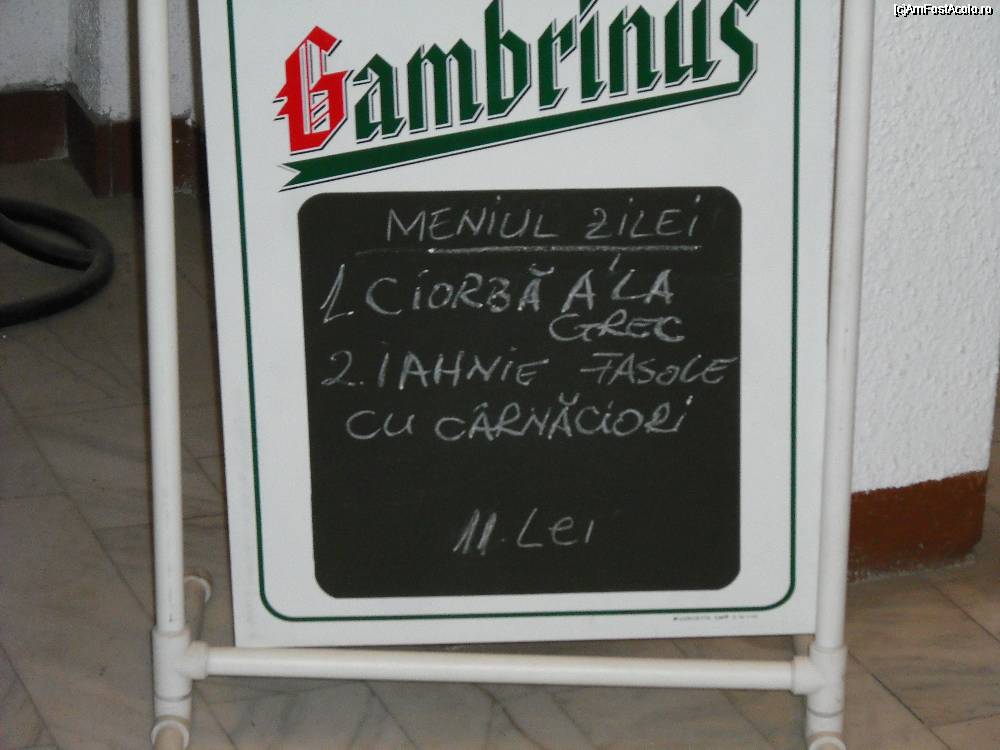 (c)AmFostAcolo.ro
Gambrinus
MENIUL ZILEI
1. CIORBĂ A'LA
GREC
2. IAHNIE FASOLE
CU CÂRNĂCIORI
11. Lei